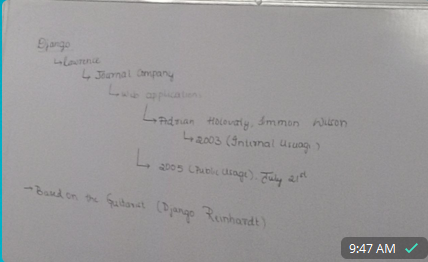 Django
↳ Lawrence
↳ Journal Company
↳ web application.
↳ Adrian Holovaty, Immon Wilson
↳ 2003 (Internal Usage)
↳ 2005 (Public Usage). July 21st
→ Based on the Guitarist (Django Reinhardt)
9:47 AM ✓